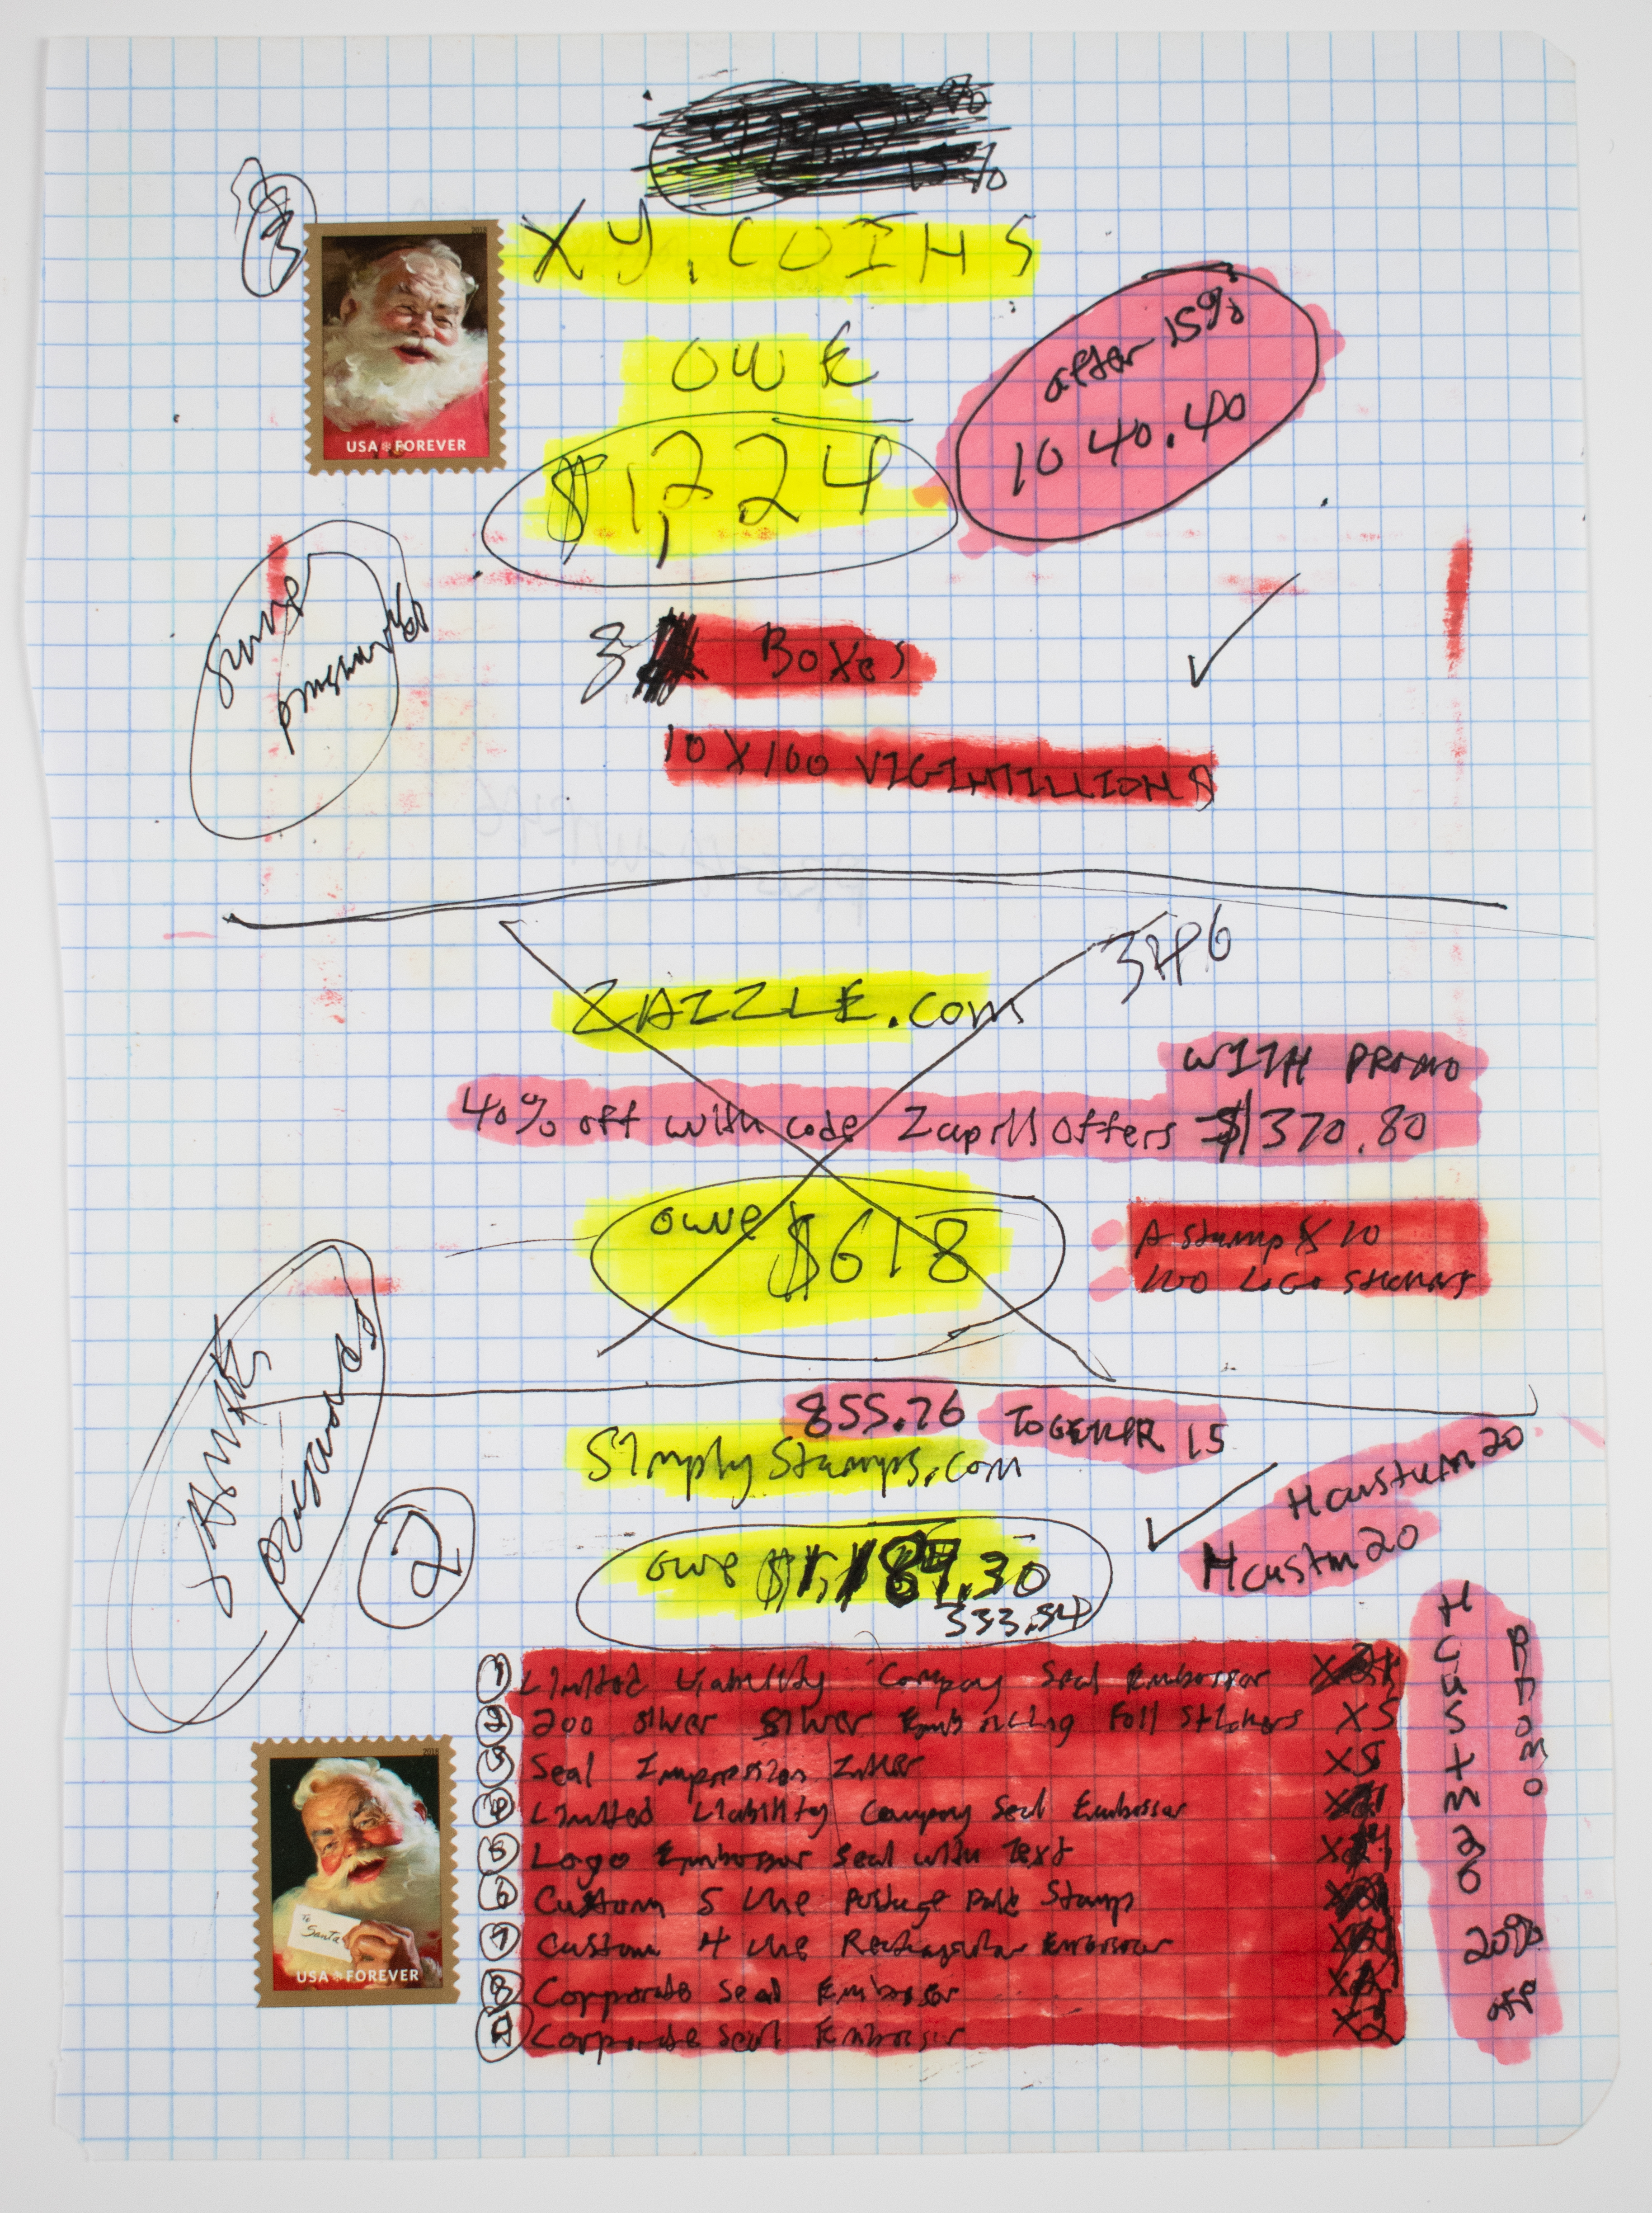 15%
XY.COINS
2018
USA FOREVER
OWE
$1,224
after 15%
1040.40
3 Boxes
10 X 100 VIGINTILLIONS
346
ZAZZLE.com
WITH PROMO
40% off with code ZaprilOffers = $1370.80
owe $618
A stamp X 10
100 LOGO stickers
855.76 TOGETHER 15
Simply Stamps.com
Hcustum20
Hcustm20
2
owe $1,187.30
333.54
① Limited Liability Company Seal Embosser
② 200 silver silver Embossing Foil Stickers X5
③ Seal Impression Inker X5
④ Limited Liability Company Seal Embosser
⑤ Logo Embosser Seal with Text
⑥ Custom 5 line Postage Stamp
⑦ Custom 4 line Rectangular Embosser
⑧ Corporate Seal Embosser
Corporate Seal Embosser X2
Hcustm20
Promo
20%
off
2018
To Santa
USA FOREVER